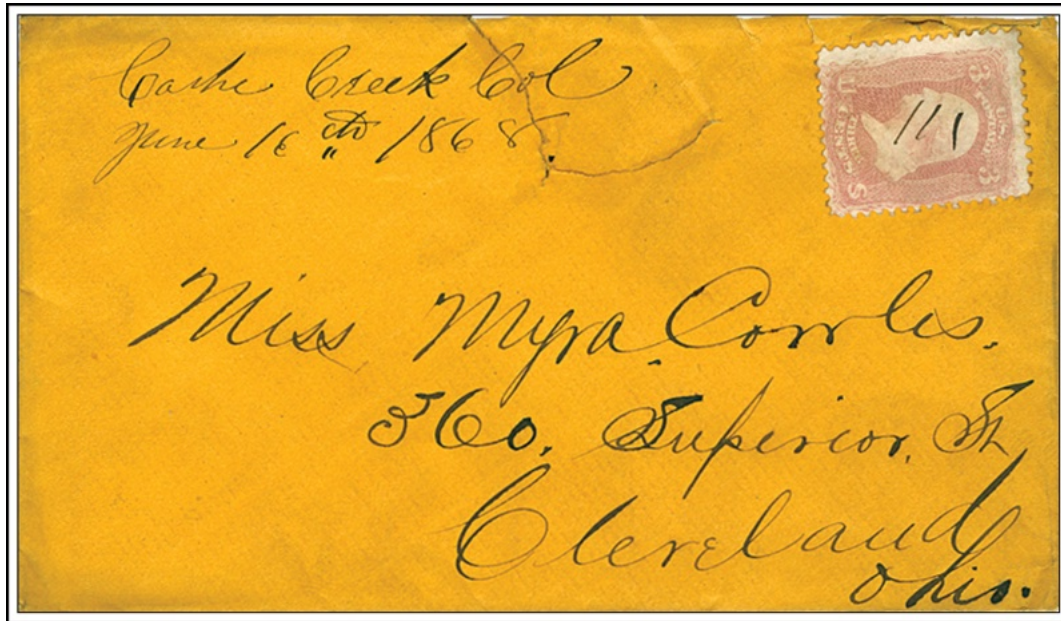 Cache Creek Col
June 16th 1868.
Miss Myra Cowles.
360. Superior. St
Cleveland
Ohio.
3 3
U
S